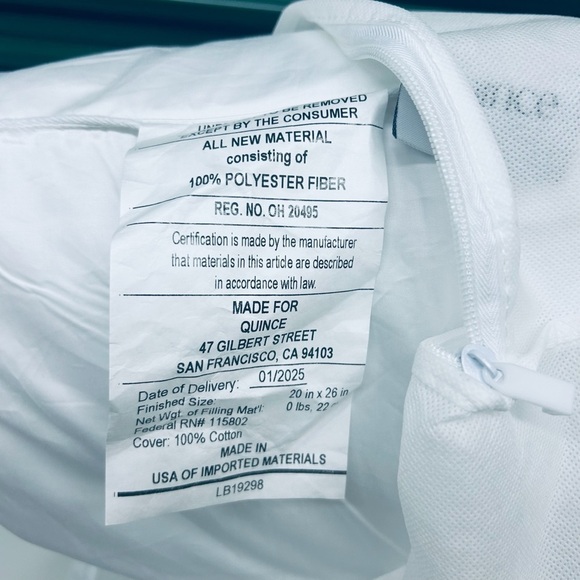 BE REMOVED
EXCEPT BY THE CONSUMER
ALL NEW MATERIAL
consisting of
100% POLYESTER FIBER
REG. NO. OH 20495
Certification is made by the manufacturer
that materials in this article are described
in accordance with law.
MADE FOR
QUINCE
47 GILBERT STREET
SAN FRANCISCO, CA 94103
Date of Delivery: 01/2025
Finished Size: 20 in x 26 in
Net Wgt. of Filling Mat'l: 0 lbs, 22
Federal RN# 115802
Cover: 100% Cotton
MADE IN
USA OF IMPORTED MATERIALS
LB19298